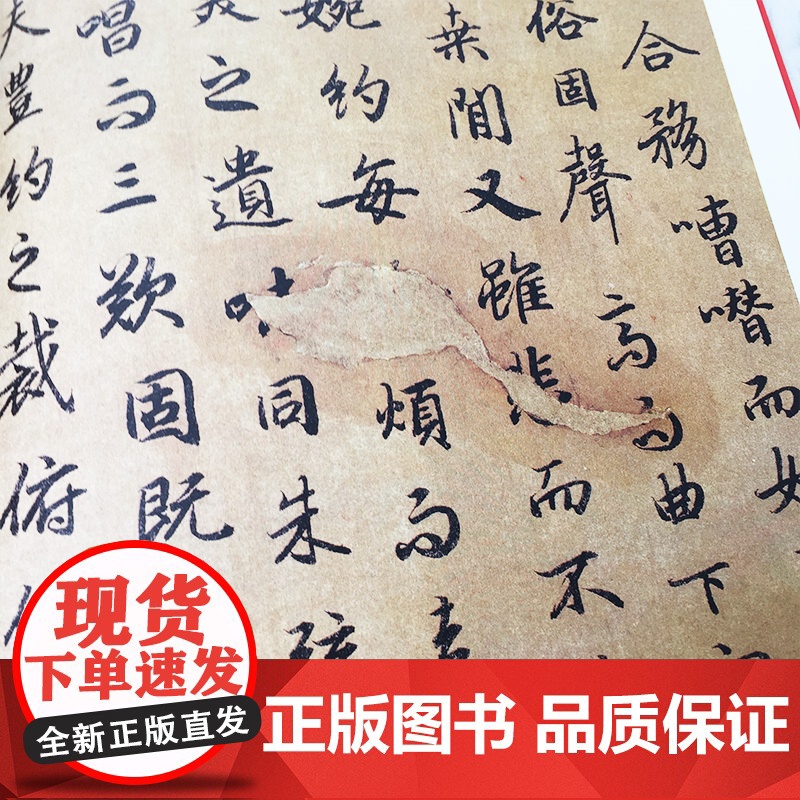 合務嘈囋而
俗固聲高而曲下
桒閒又雖悲而不
婉約每煩而
之遺味同朱弦
唱而三歎固既
夫豊約之裁俯
现货
下单速发
全新正版直发
正版图书 品质保证